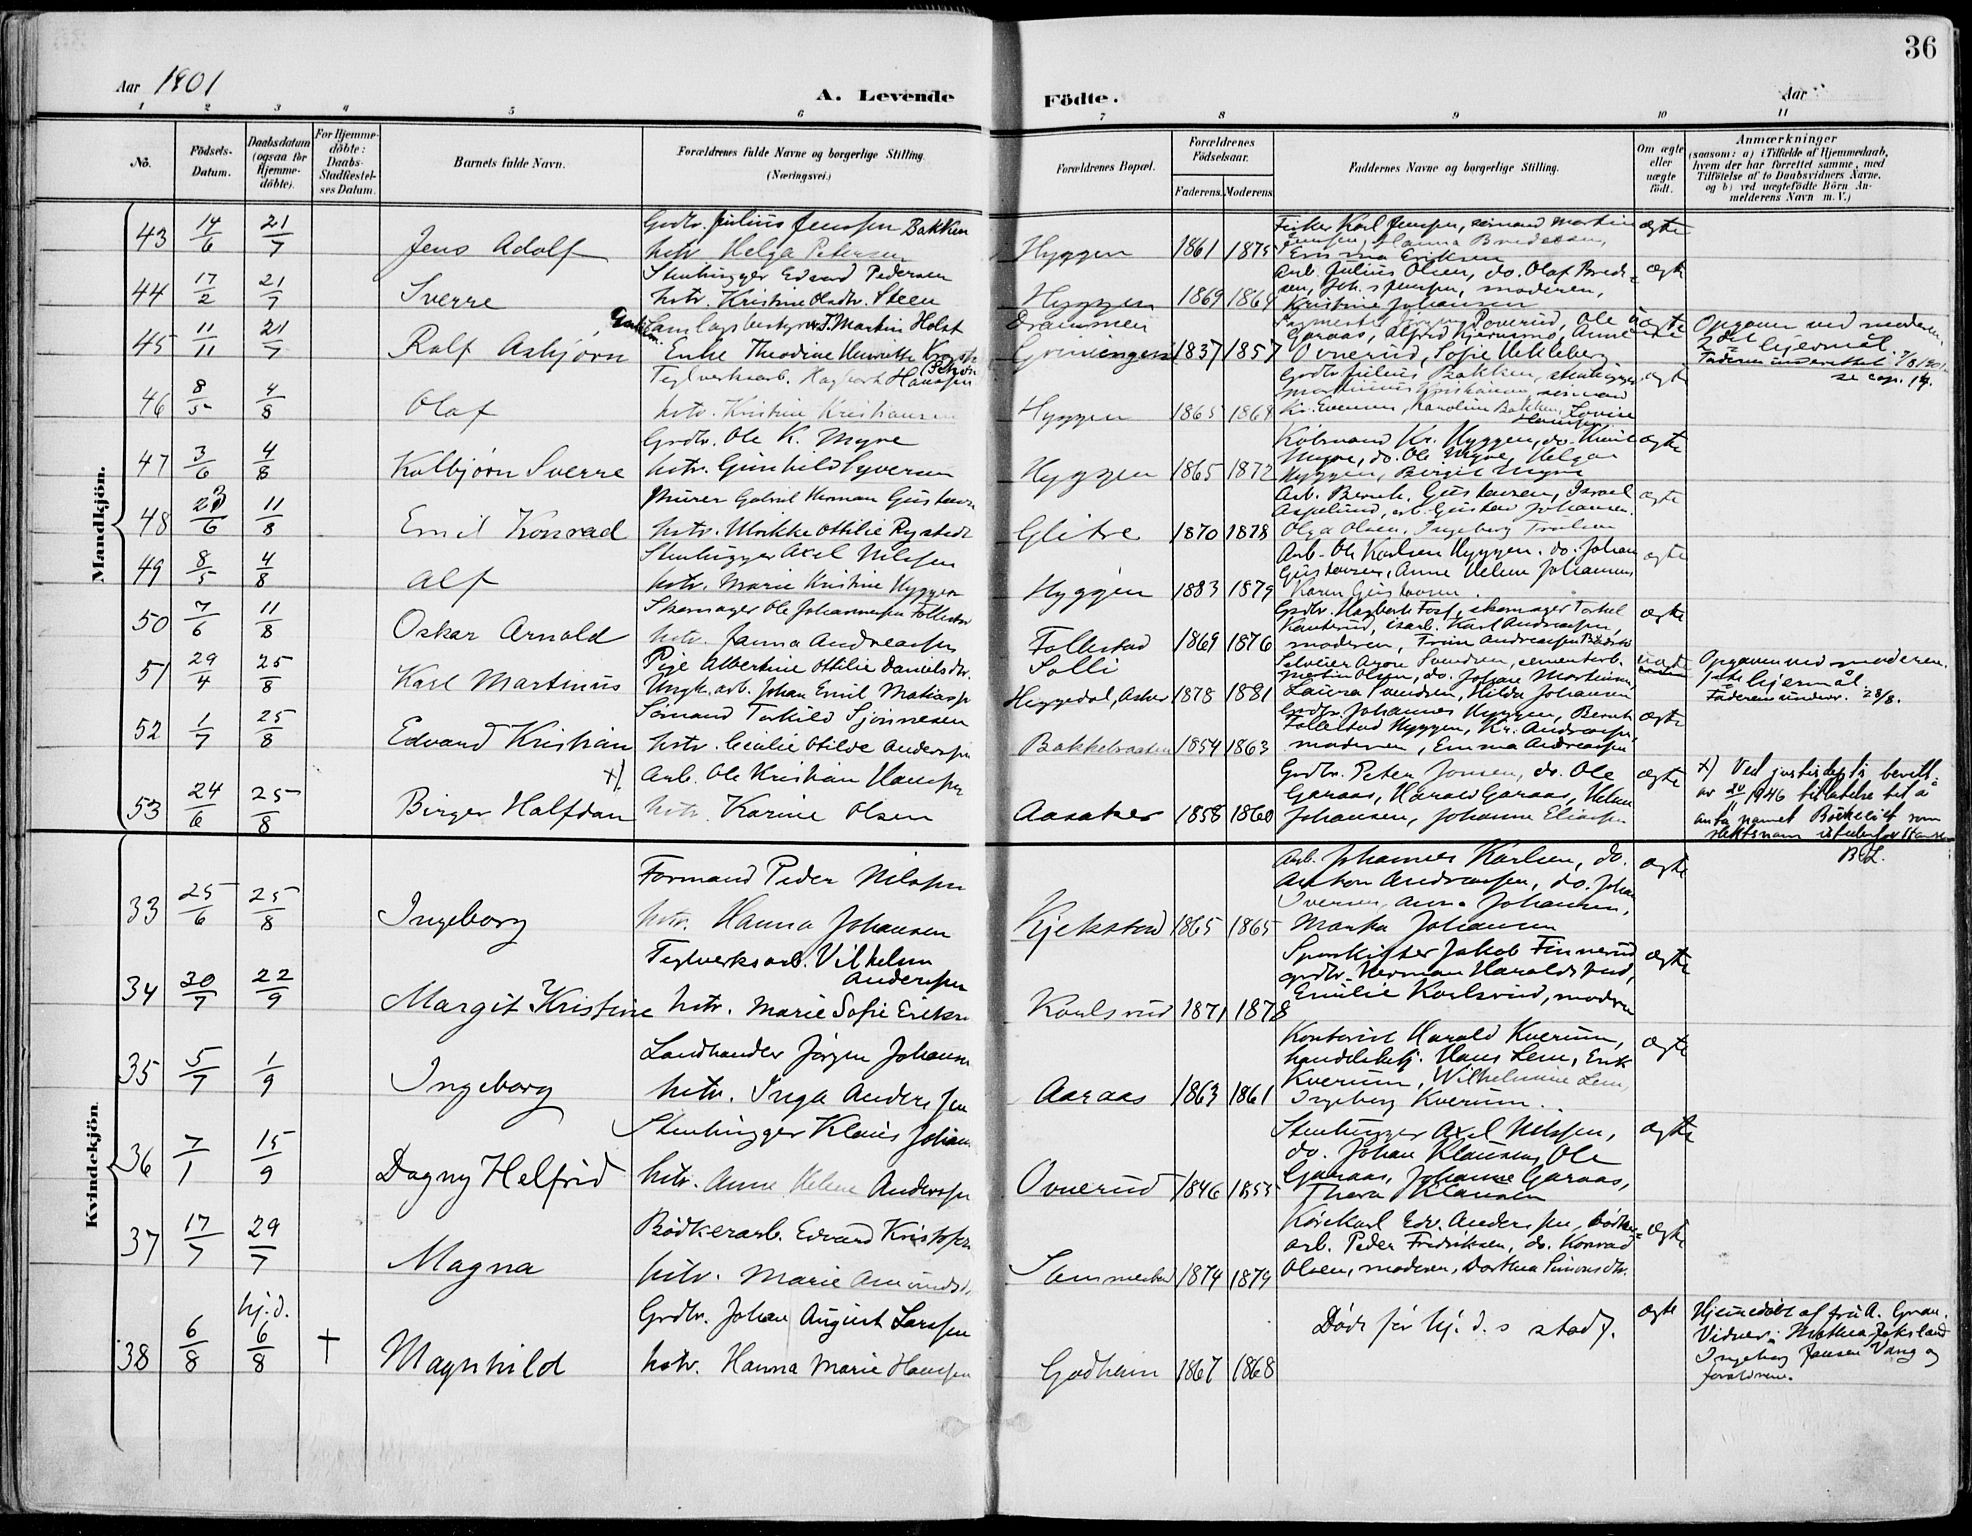 36
Aar 1901
A. Levende Födte.
Aar
1 2 3 4 5 6 7 8 9 10 11
No.
Födsels-Datum.
Daabsdatum (ogsaa for Hjemme-döbte).
For Hjemme-döbte: Daabs-Stadfæstel-ses Datum.
Barnets fulde Navn.
Forældrenes fulde Navne og borgerlige Stilling. (Næringsvei.)
Forældrenes Bopæl.
Forældrenes Födselsaar.
Faderens. Moderens.
Faddernes Navne og borgerlige Stilling.
Om ægte eller uægte födt.
Anmærkninger
(saasom: a) i Tilfælde af Hjemmedaab, hvem der har forrettet samme, med Tilföielse af to Daabsvidners Navne, og b) ved uægtefödte Börn An-melderens Navn m. V.)
Mandkjön.
43 14/6 21/7 Jens Adolf
Grdbr. Julius Jenssen Bakken
hstr. Helga Petersen
Hyggen 1861 1875
Fisker Karl Jenssen, sömand Martin
Jenssen, Hanna Bredesen,
Emma Eriksen
ægte
44 17/2 21/7 Sverre
Stenhugger Edvard Pedersen
hstr. Kristine Olsdtr. Steen
Hyggen 1869 1864
Arb. Julius Olsen, do. Olaf Bred-
sen, Joh. Jenssen, moderen,
Kristine Johansen
ægte
45 11/11 21/7 Ralf Asbjørn
Martin Holst
Enke Theodine Henriette
Drammen
1837 1857
Ovnerud, Sofie Hekleberg
uægte
Opgaven ved moderen.
2det leiermål.
Faderen underrettet 7/8 1901
se cop. 14.
46 8/5 4/8 Olaf
Teglverksarb. Hagbart Hanssen
hstr. Kristine Kristiansen
Hyggen 1865 1869
Grdbr. Julius Bakken, stenhugger
Martinius Kristiansen, sömand
Kr. Evensen, Karoline Bakken, Lovise
Hanssen
ægte
47 3/6 4/8 Kolbjørn Sverre
Grdbr. Ole K. Myre
hstr. Gunhild Syversen
Hyggen 1865 1872
Köbmand Kr. Hyggen, do. Emil
Myre, do. Ole Myre, Helga
Hyggen, Birgit Myre
ægte
48 23/6 11/8 Emil Konrad
Murer Gabriel Herman Gustavsen
hstr. Ulrikke Ottilie Rystedt
Glitre 1870 1878
Arb. Bernh. Gustavsen, Israel
Aspelund, arb. Gustav Johansen,
Olga Olsen, Ingeborg Troelsen
ægte
49 8/5 4/8 Alf
Stenhugger Axel Nilssen
hstr. Marie Kristine Hyggen
Hyggen 1883 1879
Arb. Ole Karlsen Hyggen, do. Johan
Gustavsen, Anne Helene Johansen,
Karen Gustavsen.
ægte
50 7/6 11/8 Oskar Arnold
Skomager Ole Johannessen Follestad
hstr. Janna Andreassen
Follestad 1869 1876
Grdbr. Hagbart Foss, skomager Torkel
Kanterud, isarb. Karl Andreassen,
moderen, Trine Andreassen
ægte
51 29/4 25/8 Karl Martinius
Pige Albertine Ottilie Danielsdtr.
Ungk. arb. Johan Emil Matiassen
Solli
Heggedal, Asker 1878 1881
Martin Olsen, do. Johan Martinsen,
Laura Svendsen, Hilda Johansen
uægte
Opgaven ved moderen.
1ste leiermål.
Faderen underr. 28/8.
52 1/7 25/8 Edvard Kristian
Sömand Torkild Sjönnesen
hstr. Cecilie Otilde Anderssen
Bakkebraaten 1854 1863
Grdbr. Johannes Hyggen, Bernh.
Follestad Hyggen, Kr. Andreassen,
moderen, Emma Andreassen
ægte
53 24/6 25/8 Birger Halfdan x)
Arb. Ole Kristian Hanssen
hstr. Karine Olsen
Aasaker 1858 1860
Grdbr. Peter Jonsen, do. Ole
Garaas, Harald Garaas, Helene
Johansen, Johanne Eliassen
ægte
x) Ved justisdep.ts bevill.
av 20/11 1946 tillatelse til å
anta navnet som
slektsnavn istedenfor Hansen
B.L.
Kvindekjön.
33 25/6 25/8 Ingeborg
Formand Peder Nilssen
hstr. Hanna Johansen
Kjekstad 1865 1865
Arb. Johannes Karlsen, do.
Anton Andreassen, do. Johan
Iversen, Anna Johansen,
Marta Johansen
ægte
34 30/7 22/9 Margit Kristine
Teglverksarb. Vilhelm
Anderssen
hstr. Marie Sofie Eriksen
Karlsrud 1871 1878
Sporskifter Jakob Finnerud,
grdbr. Herman Haraldstvad,
Emilie Karlsrud, moderen
ægte
35 5/7 1/9 Ingeborg
Landhandler Jörgen Johansen
hstr. Inga Anderssen
Aaraas 1863 1861
Kontorist Harald Kverum,
handelsbetj. Hans Lem, Erik
Kverum, Wilhelmine Lem,
Ingeborg Kverum.
ægte
36 7/1 15/9 Dagny Helfrid
Stenhugger Klaus Johansen
hstr. Anne Helene Anderssen
Ovnerud 1846 1855
Stenhugger Axel Nilssen,
do. Johan Klausen, Ole
Garaas, Johanne Garaas,
Thora Klausen
ægte
37 17/7 29/7 Magna
Bödkerarb. Edvard Kristoffersen
hstr. Marie Amundsdtr.
1874 1879
Körekarl Edv. Anderssen, bödker-
arb. Peder Fredriksen, do. Konrad
Olsen, moderen, Dorthea Simonsdtr.
ægte
38 6/8 hj.d. 6/8 † Magnhild
Grdbr. Johan August Larssen
hstr. Hanna Marie Hanssen
Godheim 1867 1868
Döde för hj. d. s stadf.
ægte
Hjemmedöbt af fru A. Gran.
Vidner: Mathea Jaksland
Ingeborg Jansen Vang og
forældrene.